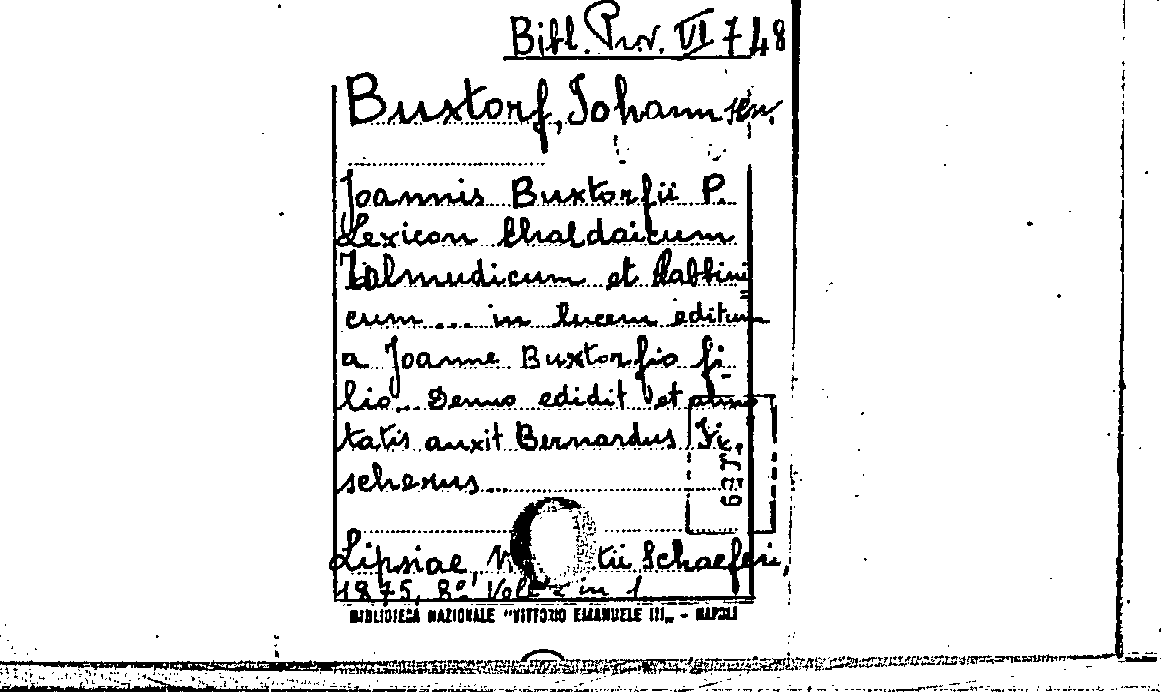 Bibl. Prov. VI 748
Buxtorf, Johann sen.
Joannis Buxtorfii P.
Lexicon Chaldaicum
Talmudicum et Rabbini
cum ... in lucem editum
a Joanne Buxtorfio fi-
lio.. Denuo edidit et
tatis auxit Bernardus Fi-
scherus...
Lipsiae, tii Schaeferi,
1875, 8° Voll. 2 in 1
BIBLIOTECA NAZIONALE "VITTORIO EMANUELE III" - NAPOLI